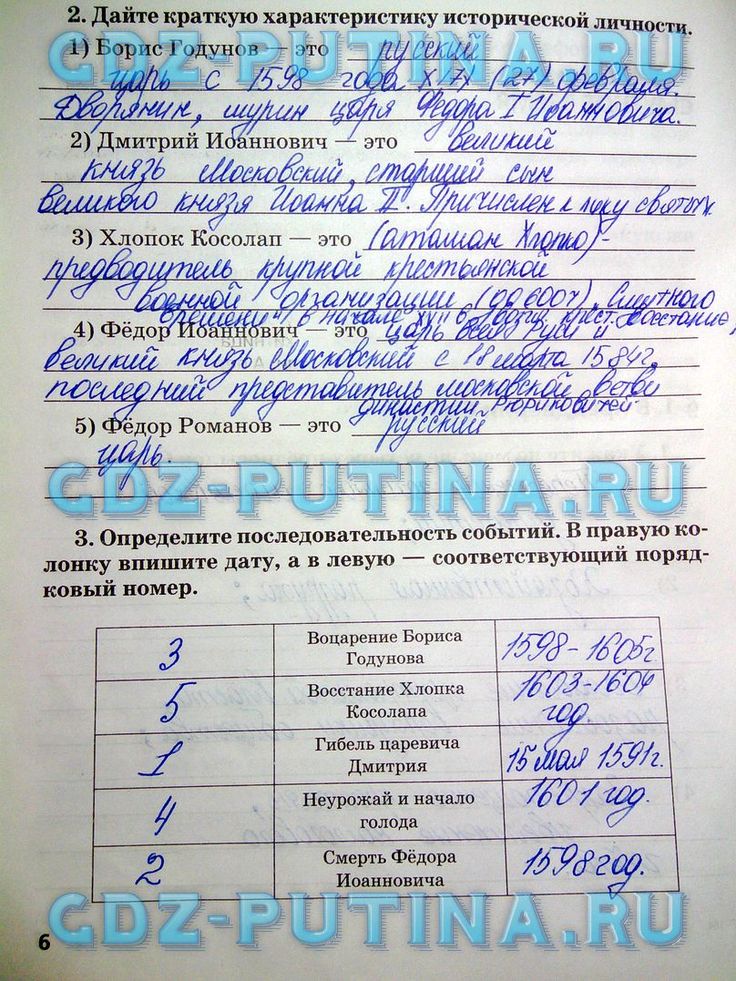 2. Дайте краткую характеристику исторической личности.
1) Борис Годунов — это русский
GDZ-PUTINA.RU
царь с 1598 года 17 (27) февраля.
Дворянин, шурин царя Фёдора I Иоанновича.
2) Дмитрий Иоаннович — это великий
князь Московский, старший сын
великого князя Иоанна III. Причислен к лику святых.
3) Хлопок Косолап — это (атаман Хлопко)-
предводитель крупной крестьянской
военной организации (до 600ч). Смутного
времени в начале XVII в. крест. восстание,
4) Фёдор Иоаннович — это царь всея Руси и
великий князь Московский с 18 марта 1584г.
последний представитель московской ветви
династии Рюриковичей
5) Фёдор Романов — это русский
царь.
GDZ-PUTINA.RU
3. Определите последовательность событий. В правую ко-
лонку впишите дату, а в левую — соответствующий поряд-
ковый номер.
3 Воцарение Бориса Годунова 1598-1605г
5 Восстание Хлопка Косолапа 1603-1604 год
1 Гибель царевича Дмитрия 15 мая 1591г.
4 Неурожай и начало голода 1601 год.
2 Смерть Фёдора Иоанновича 1598 год.
GDZ-PUTINA.RU
6